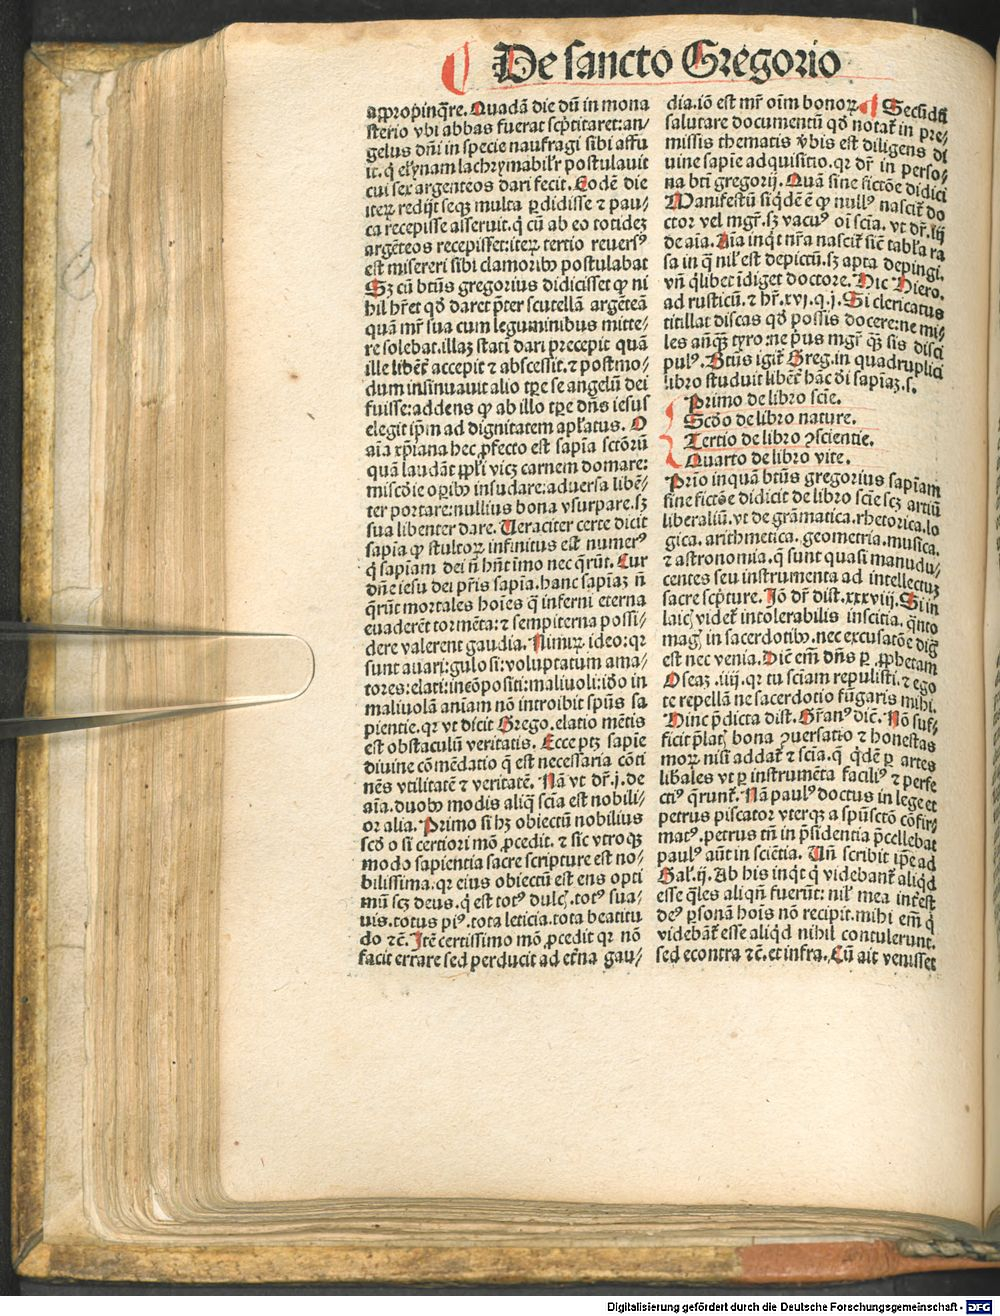 De sancto Gregorio
appropinq̃re. Quadã die dũ in mona
sterio vbi abbas fuerat sc̃ptitaret: an/
gelus dñi in specie naufragi sibi affu
it. q̇ elynam lachrymabilr̃ postulauit
cui sex argenteos dari fecit. Eodẽ die
iterꝝ redijt seqꝫ multa ꝑdidisse ⁊ pau/
ca recepisse asseruit. q̇ cũ ab eo totideꝫ
argẽteos recepisset: iterꝝ tertio reuersꝰ
est misereri sibi clamoribꝰ postulabat
Sꝫ cũ btũs gregorius didicisset ꝙ ni
hil hr̃et qđ daret p̃ter scutellã argẽteã
quã mr̃ sua cum leguminibus mitte/
re solebat. illaꝫ statĩ dari precepit quã
ille libẽt̃ accepit ⁊ abscessit. ⁊ postmo/
dum insinuauit alio tꝑe se angelũ dei
fuisse: addens ꝙ ab illo tꝑe dñs iesus
elegit ip̃m ad dignitatem apl̃atus. O
aĩa xp̃iana hec ꝓfecto est sapĩa sctõrũ
quã laudãt ppl̃i vicꝫ carnem domare:
miscõie oꝑibꝰ insudare: aduersa libẽ/
ter portare: nullius bona vsurpare. sꝫ
sua libenter dare. Veraciter certe dicit
sapĩa ꝙ stultorꝝ infinitus est numerꝰ
q̇ sapĩam dei ñ hñt imo nec q̃rũt. Cur
dñe iesu dei pr̃is sapĩa. hanc sapĩaꝫ ñ
q̃rũt mortales hoĩes q̃ inferni eterna
euaderẽt tormẽta: ⁊ sempiterna possi/
dere valerent gaudia. Nimirꝝ ideo: qr
sunt auari: gulosi: voluptatum ama/
tores: elati: incõpositi: maliuoli: iđo in
maliuolã anĩam nõ introibit spũs sa
pientie. qr vt dicit Grego. elatio mẽtis
est obstaculũ veritatis. Ecce ptꝫ sapĩe
diuine cõmẽdatio q̃ est necessaria cõti
nẽs vtilitatẽ ⁊ veritatẽ. Nã vt dr̃. j. de
aĩa. duobꝰ modis aliq̃ scĩa est nobili/
or alia. Primo si hꝫ obiectũ nobilius
scđo si certiori mõ ꝓcedit. ⁊ sic vtroqꝫ
modo sapientia sacre scripture est no/
bilissima. qr eius obiectũ est ens opti
mũ scꝫ deus. q̇ est totꝰ dulcꝭ. totꝰ sua/
uis. totus piꝰ. tota leticia. tota beatitu
do ⁊c̃. Itẽ certissimo mõ ꝓcedit qr nõ
facit errare sed perducit ad et̃na gau/
dia. iõ est mr̃ oĩm bonorꝝ. Secũdũ
salutare documentũ qđ notat̃ in pre/
missis thematis ṽbis est diligens di
uine sapĩe adquisitio. qr dr̃ in perso/
na bti gregorij. Quã sine fictõe didici
Manifestũ siq̇dẽ ẽ ꝙ nullꝰ nascit̃ do
ctor vel mgr̃. sꝫ vacuꝰ oĩ scĩa. vt dr̃. iij
de aĩa. Aĩa inq̇t nr̃a nascit̃ sic̃ tabl̃a ra
sa in q̃ nil̃ est depictũ. sꝫ apta depingi.
vñ q̇libet ĩdiget doctore. Dic Hiero.
ad rusticũ. ⁊ hr̃. xvj. q. j. Si clericatus
titillat discas qđ possis docere: ne mi/
les añqꝫ tyro: ne pus mgr̃ qꝫ sis disci
pulꝰ. Btũs igit̃ Greg. in quadruplici
libro studuit libẽt̃ hãc đi sapĩaꝫ. s.
Primo de libro scĩe.
Scđo de libro nature.
Tertio de libro ꝯscientie.
Quarto de libro vite.
Prio inquã btũs gregorius sapĩam
sine fictõe didicit de libro scĩe scꝫ artiũ
liberaliũ. vt de grãmatica. rhetorica. lo
gica. arithmetica. geometria. musica.
⁊ astronomia. q̃ sunt quasi manudu/
centes seu instrumenta ad intellectuꝫ
sacre scp̃ture. Iõ dr̃ dist. xxxviij. Si in
laicꝭ videt̃ intolerabilis inscitia. q̃nto
magꝭ in sacerdotibꝰ. nec excusatõe dig̃
est nec venia. Dic̃ em̃ dñs ꝑ ꝓphetam
Oseaꝫ. iiij. qr tu scĩam repulisti. ⁊ ego
te repellã ne sacerdotio fũgaris mihi.
Hinc p̃dicta dist. Gr̃anꝰ dic̃. Nõ suf/
ficit p̃latꝭ bona ꝯuersatio ⁊ honestas
morꝝ nisi addat̃ ⁊ scĩa. q̃ q̇dẽ ꝑ artes
lib̃ales vt ꝑ instrumẽta faciliꝰ ⁊ perfe
ctiꝰ q̃runt̃. Nã paulꝰ doctus in lege et
petrus piscator vterqꝫ a spũsctõ cõfir/
matꝰ. petrus tñ in p̃sidentia p̃cellebat
paulꝰ aũt in sciẽtia. Vñ scribit ip̃e ad
Gal̃. ij. Ab his inq̇t q̇ videbant̃ aliq̇d
esse q̃les aliqñ fuerũt: nil̃ mea int̃est
deꝰ ꝑsonã hoĩs nõ recipit. mihi em̃ q̇
videbãt̃ esse aliq̇d nihil contulerunt.
sed econtra ⁊c̃. et infra. Cũ aũt venisset
Digitalisierung gefördert durch die Deutsche Forschungsgemeinschaft - DFG